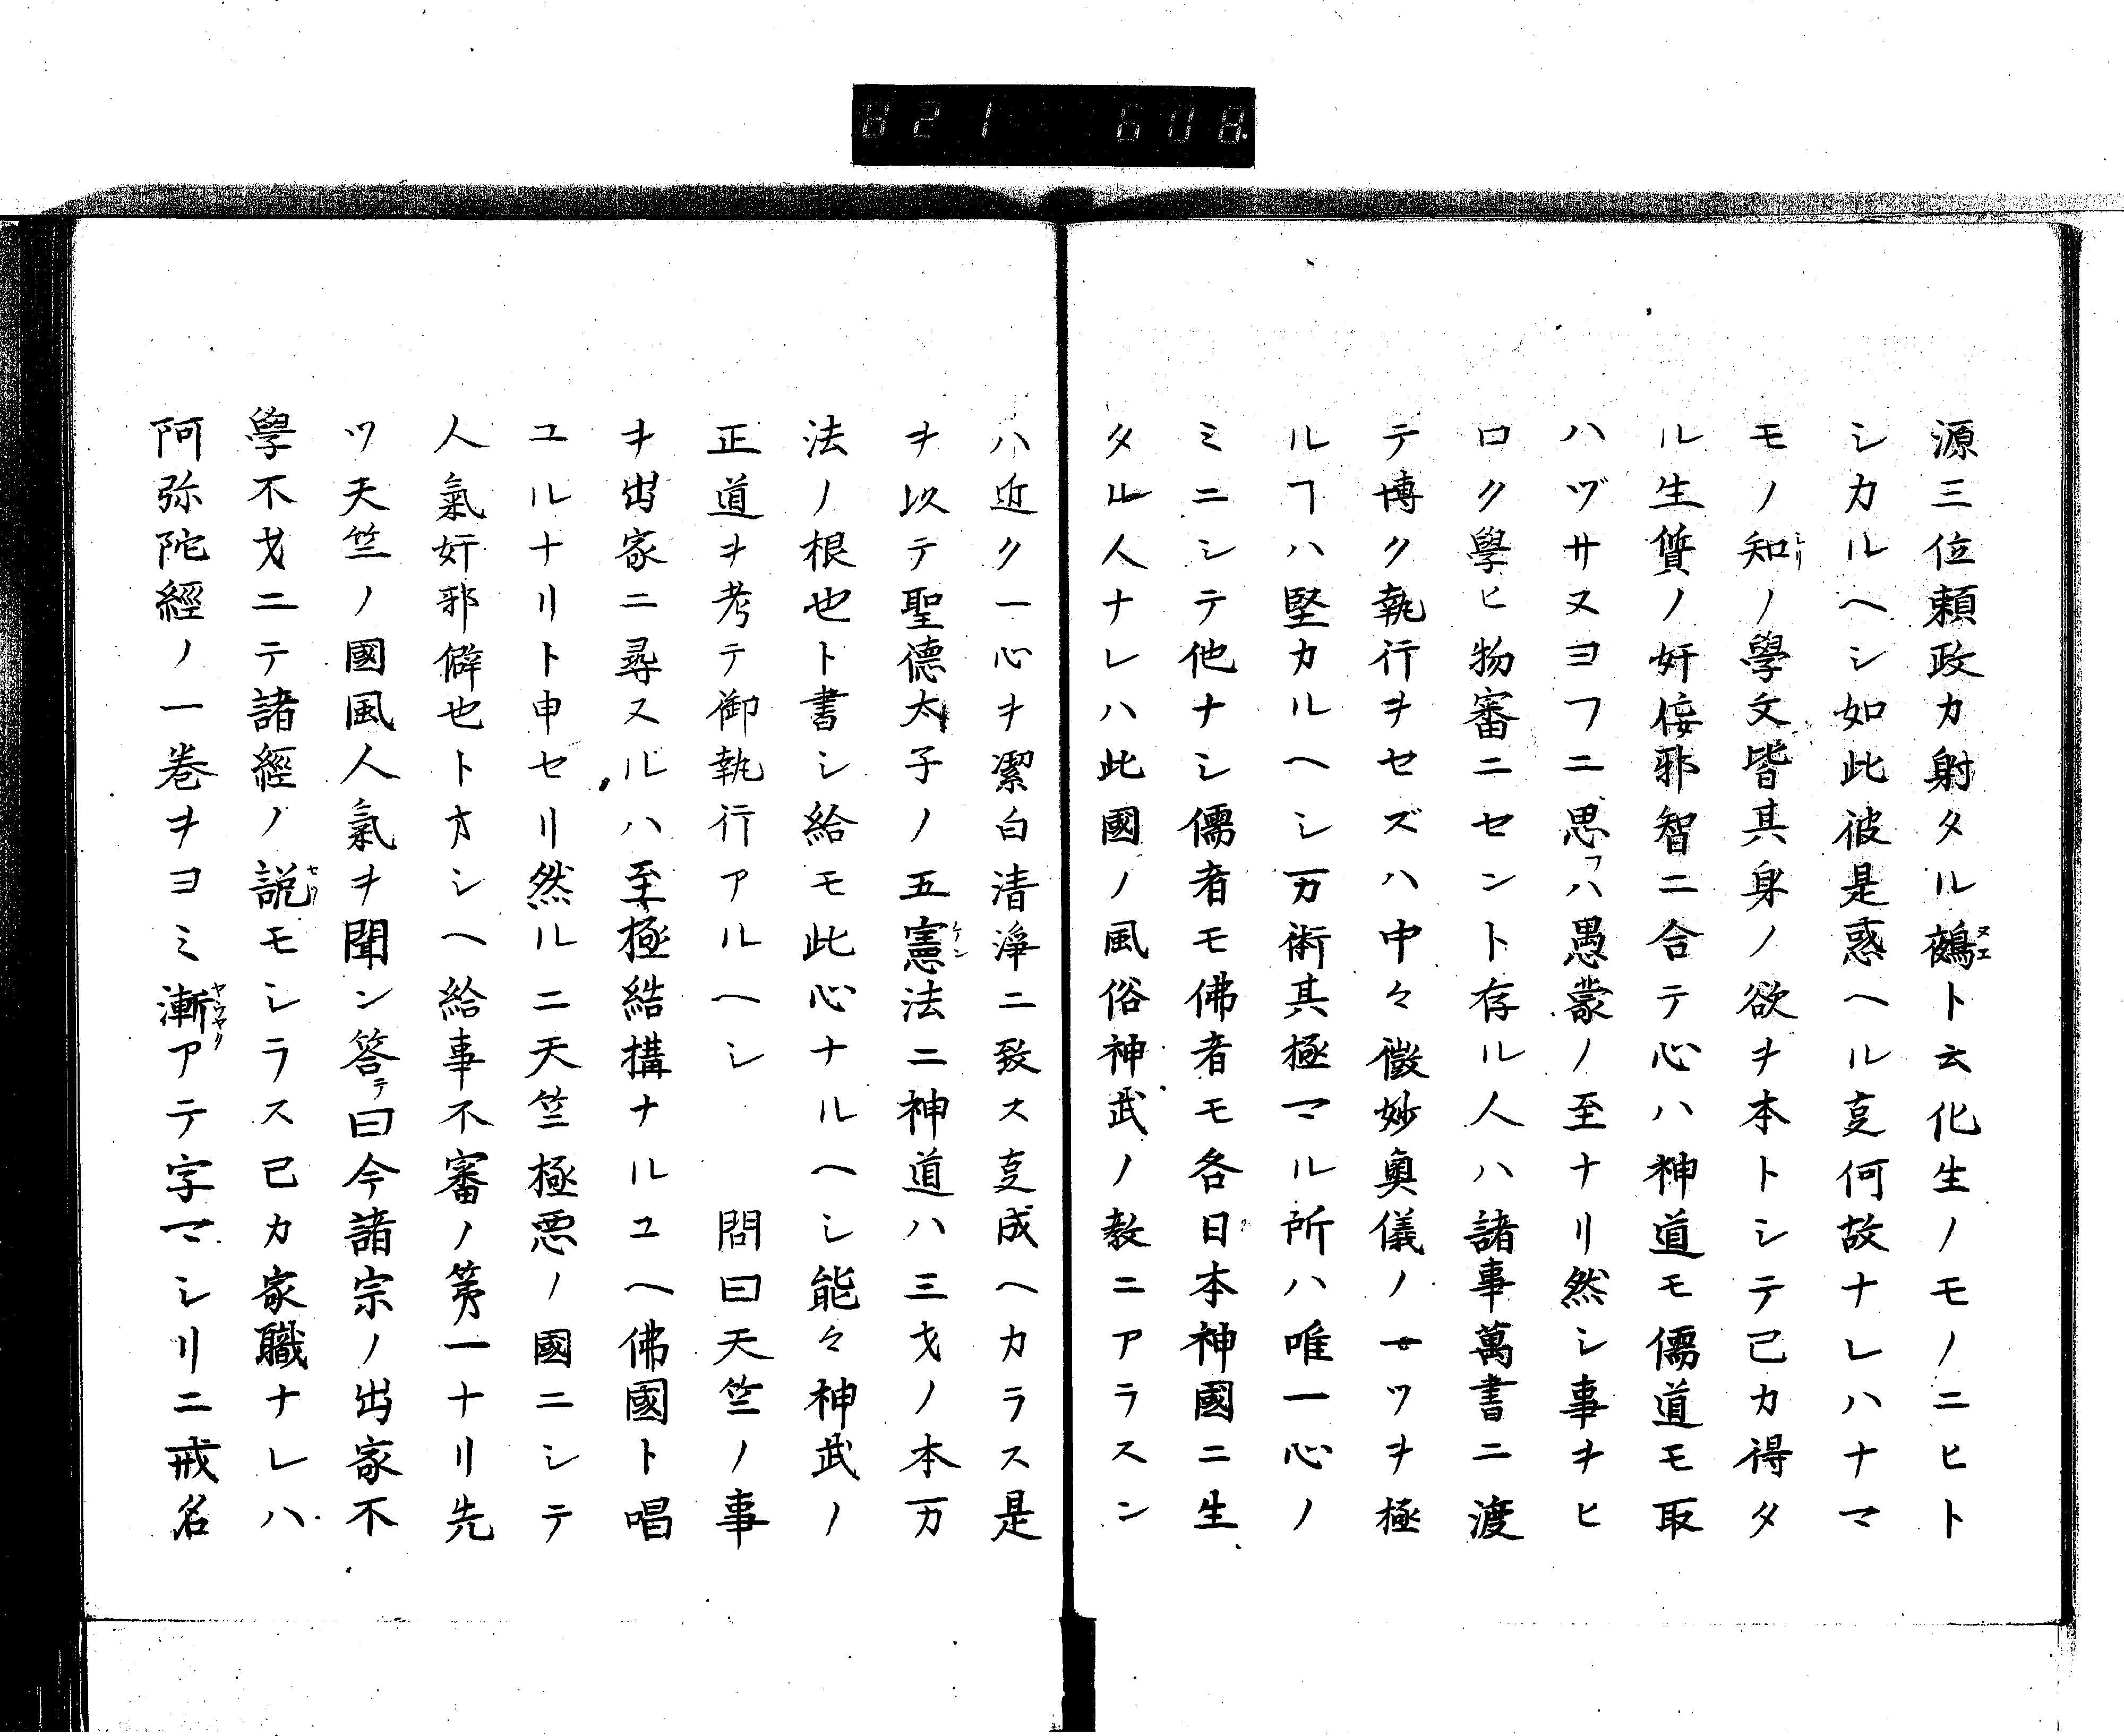 821 608
源三位頼政カ射タル鵺ヌエト云化生ノモノニヒト
シカルヘシ如此彼是惑ヘル㕝何故ナレハナマ
モノ知シリノ學文皆其身ノ欲ヲ本トシテ己カ得タ
ル生質ノ奸侫邪智ニ合テ心ハ神道モ儒道モ取
ハヅサヌヨフニ思フハ愚蒙ノ至ナリ然シ事ヲヒ
ロク學ヒ物審ニセント存ル人ハ諸事萬書ニ渡
テ博ク執行ヲセズハ中々徴妙奥儀ノ一ツヲ極
ルヿハ堅カルヘシ万術其極マル所ハ唯一心ノ
ミニシテ他ナシ儒者モ佛者モ各日本神國ニ生
タル人ナレハ此國ノ風俗神武ノ教ニアラスン
ハ近ク一心ヲ潔白清淨ニ致ス㕝成ヘカラス是
ヲ以テ聖德太子ノ五憲ケン法ニ神道ハ三才ノ本万
法ノ根也ト書シ給モ此心ナルヘシ能々神武ノ
正道ヲ考テ御執行アルヘシ　問曰天竺ノ事
ヲ出家ニ尋ヌルハ至極結構ナルユヘ佛國ト唱
ユルナリト申セリ然ルニ天竺極悪ノ國ニシテ
人氣奸邪僻也トオシヘ給事不審ノ第一ナリ先
ツ天竺ノ國風人氣ヲ聞ン答テ曰今諸宗ノ出家不
學不才ニテ諸經ノ説セツモシラス己カ家職ナレハ
阿弥陀經ノ一巻ヲヨミ漸ヤウヤクアテ字マシリニ戒名